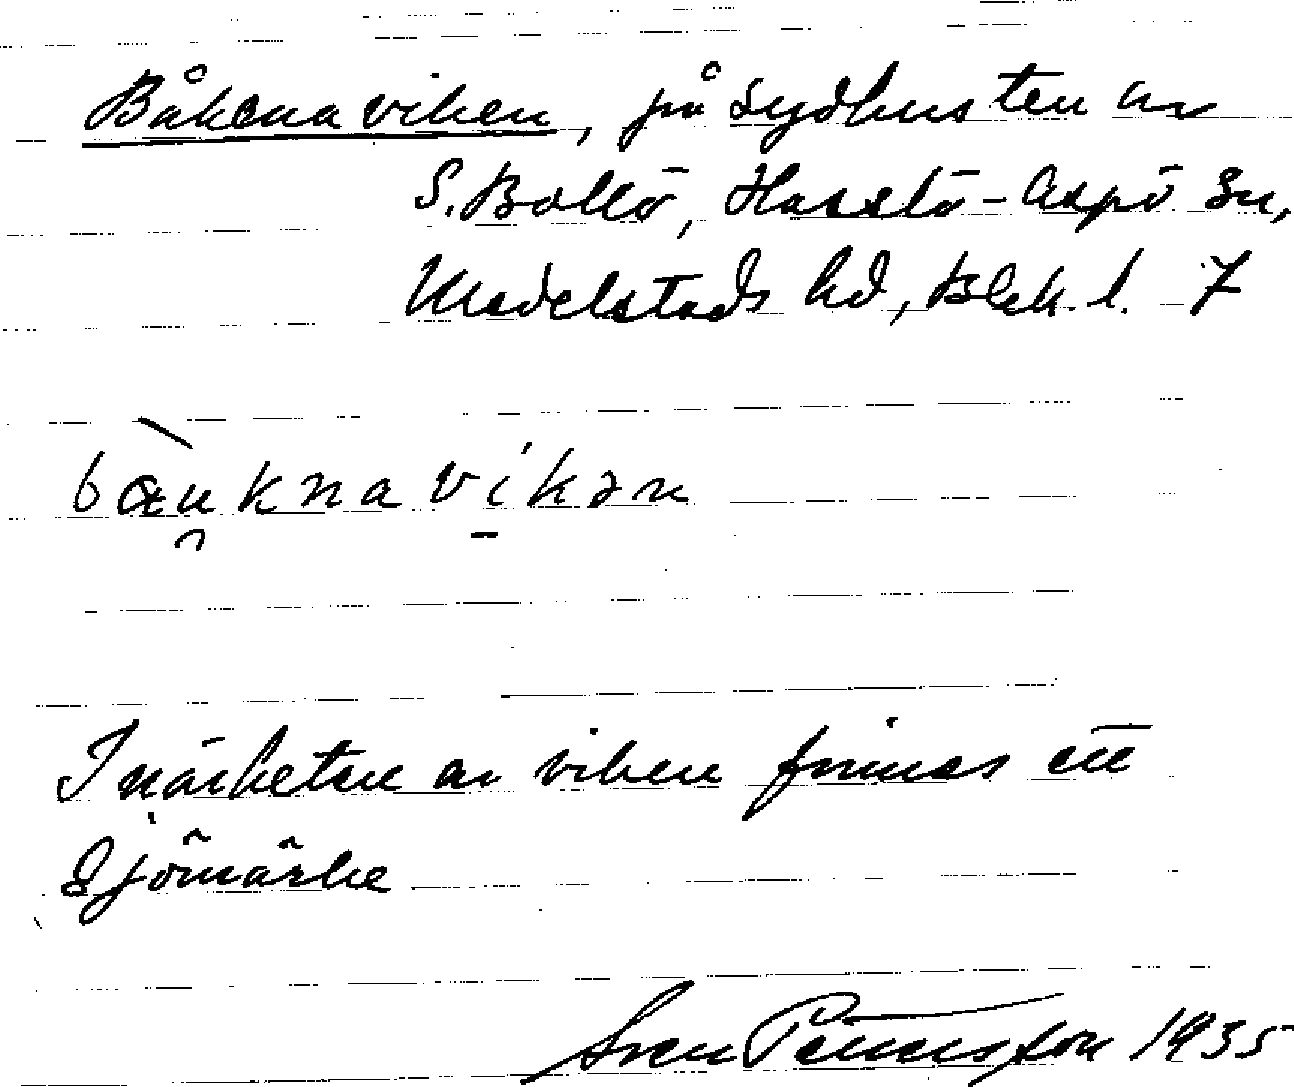 Båkenaviken, på sydkusten av
S. Bollö, Hasslö-Aspö sn,
Medelstads hd, Blek. l. 7
bæu̯knavikən
I närheten av viken finnes ett
sjömärke
Sven Pettersson 1935